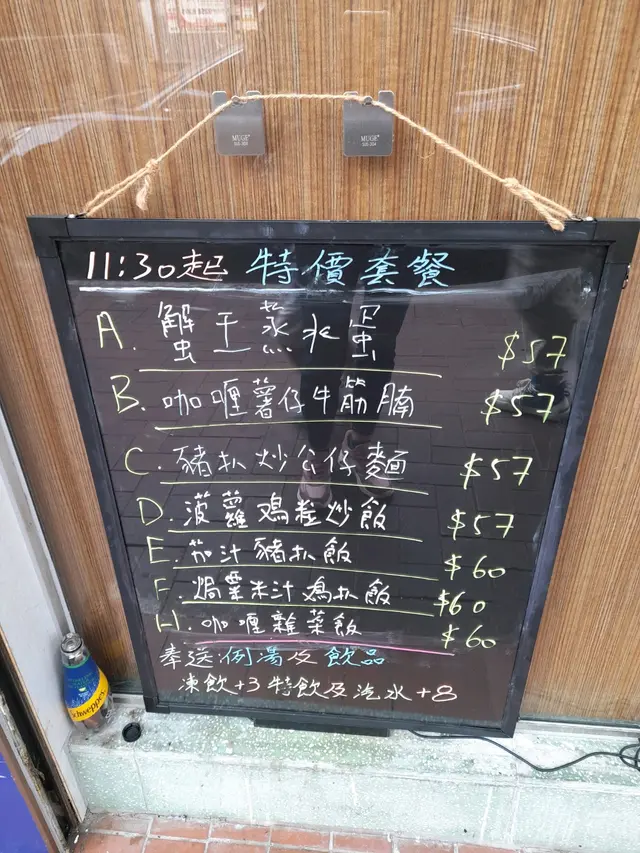 MUGE MUGE
11:30起 特價套餐
A. 蟹王蒸水蛋 $57
B. 咖喱薯仔牛筋腩 $57
C. 豬扒炒公仔麵 $57
D. 菠蘿鷄粒炒飯 $57
E. 茄汁豬扒飯 $60
F. 焗粟米汁鷄扒飯 $60
H. 咖喱雜菜飯 $60
奉送例湯及飲品
凍飲+3 特飲及汽水+8
Schweppes